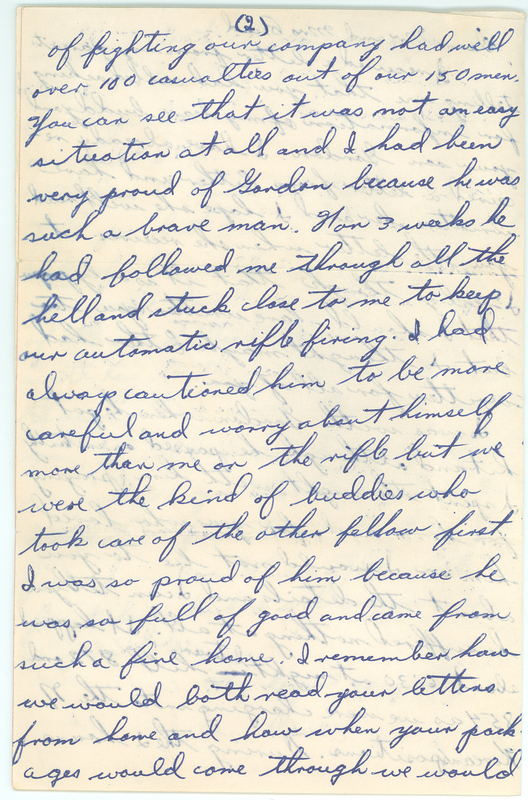 (2)
of fighting our company had well
over 100 casualties out of our 150 men.
You can see that it was not an easy
situation at all and I had been
very proud of Gordon because he was
such a brave man. For 3 weeks he
had followed me through all the
hell and stuck close to me to keep
our automatic rifle firing. I had
always cautioned him to be more
careful and worry about himself
more than me or the rifle but we
were the kind of buddies who
took care of the other fellow first.
I was so proud of him because he
was so full of good and came from
such a fine home. I remember how
we would both read your letters
from home and how when your pack-
ages would come through we would